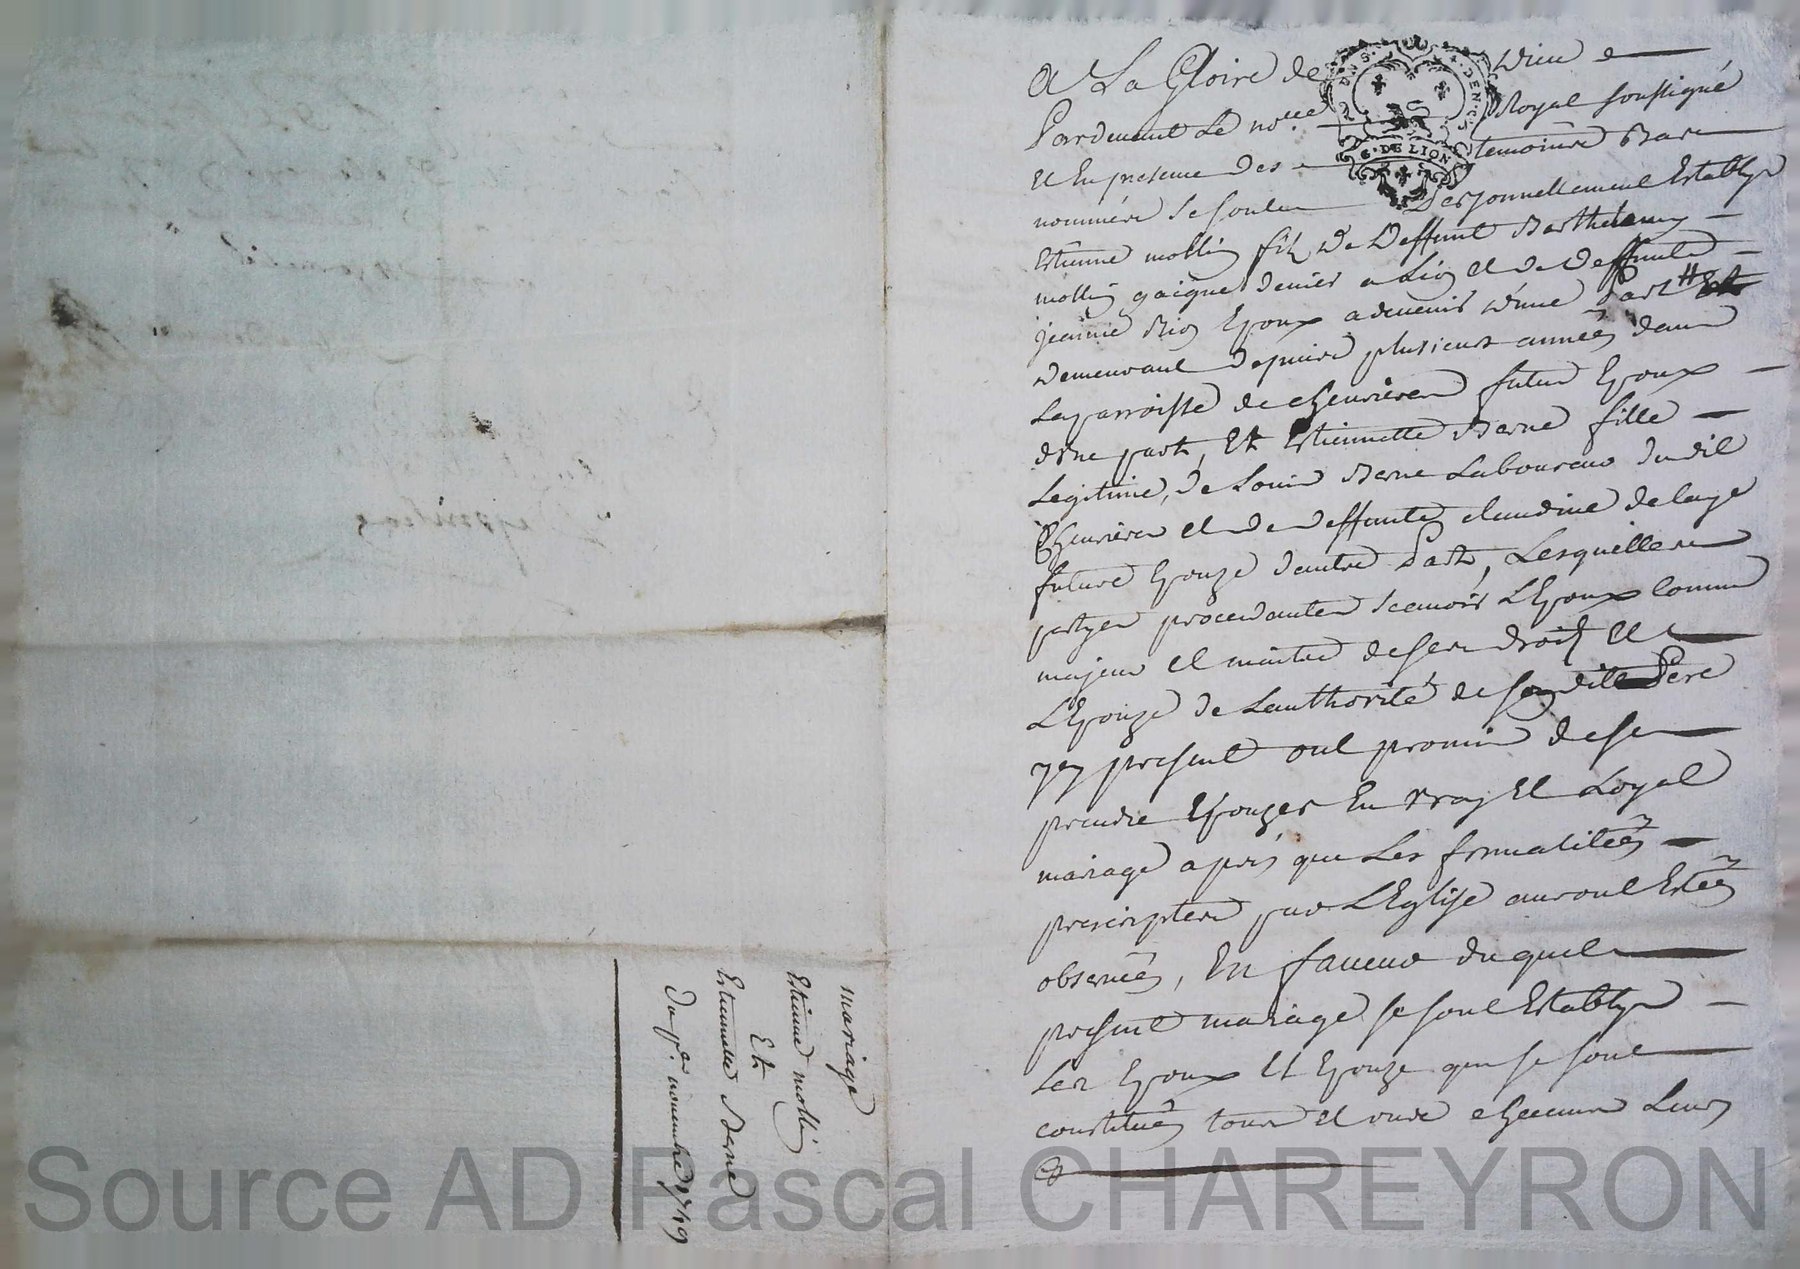 A La Gloire de Dieu
Pardevant Le no.re Royal soussigné
Et En presence des temoins Bas
nommés se sont Personnellement Establys
Estienne mollin fils De Deffunt Barthelemy
mollin gaigne denier a Lion Et de Deffunte
jeanne Epoux advenir d'une Part
Demeurant depuis plusieurs années dans
La parroisse de cheurieres futur Epoux
d'une part, Et Estiennette Berne fille
Legitime, de Louis Berne Laboureur dudit
Cheurieres et de deffunte claudine delaye
future Epouze d'autre Part, Lesquelles
partyes procedantes scauoir L'Epoux comme
majeur et maitre de ses droits Et
L'Epouze de L'authorité de son dit Pere
ycy present ont promis de se
prendre Epouzer En vray Et Loyal
mariage apres que Les formalitées
prescriptes par L'Eglise auront Estées
observées, En faveur duquel
present mariage se sont Establys
Les Epoux Et Epouze qui se sont
constitués tous et un chacuns Leurs
mariage
Estienne mollin
Et
Estiennette Berne
Du p.er novembre 1749
G. DE LION
Source AD Pascal CHAREYRON